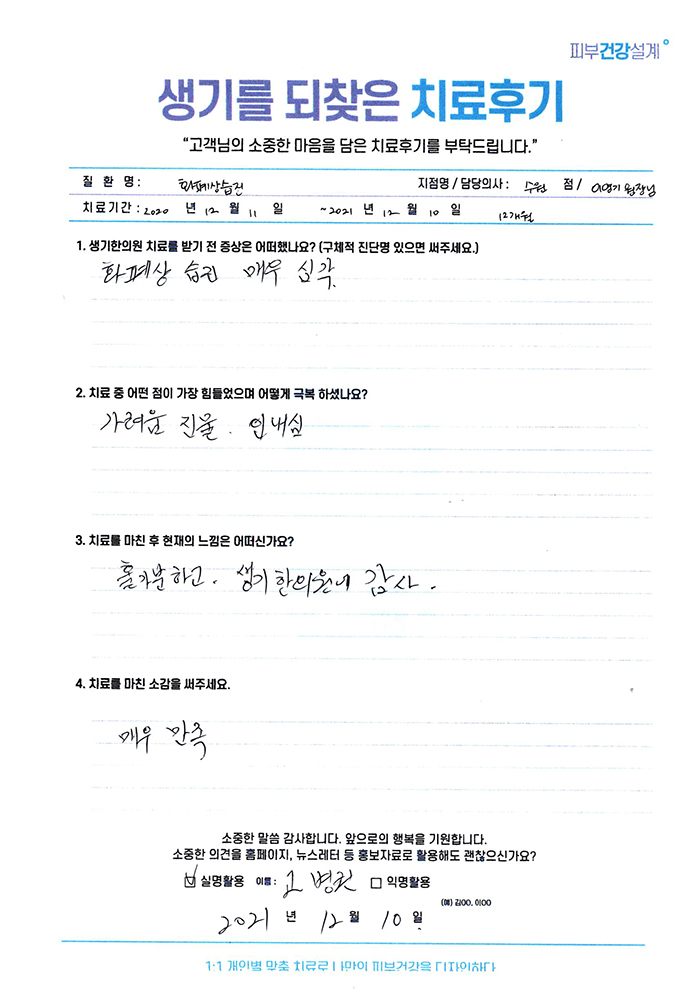 피부건강설계
생기를 되찾은 치료후기
“고객님의 소중한 마음을 담은 치료후기를 부탁드립니다.”
질 환 명 : 화폐상습진 지점명 / 담당의사 : 수원 점 / 이영기 원장님
치료기간 : 2020 년 12 월 11 일 ~2021 년 12 월 10 일 12개월
1. 생기한의원 치료를 받기 전 증상은 어떠했나요? (구체적 진단명 있으면 써주세요.)
화폐상 습진 매우 심각
2. 치료 중 어떤 점이 가장 힘들었으며 어떻게 극복 하셨나요?
가려움 진물. 인내심
3. 치료를 마친 후 현재의 느낌은 어떠신가요?
홀가분하고. 생기한의원에 감사.
4. 치료를 마친 소감을 써주세요.
매우 만족
소중한 말씀 감사합니다. 앞으로의 행복을 기원합니다.
소중한 의견을 홈페이지, 뉴스레터 등 홍보자료로 활용해도 괜찮으신가요?
실명활용 이름 : 고 병 익명활용
(예) 김OO, 이OO
2021 년 12 월 10 일
1:1 개인별 맞춤 치료로 나만의 피부건강을 디자인하다